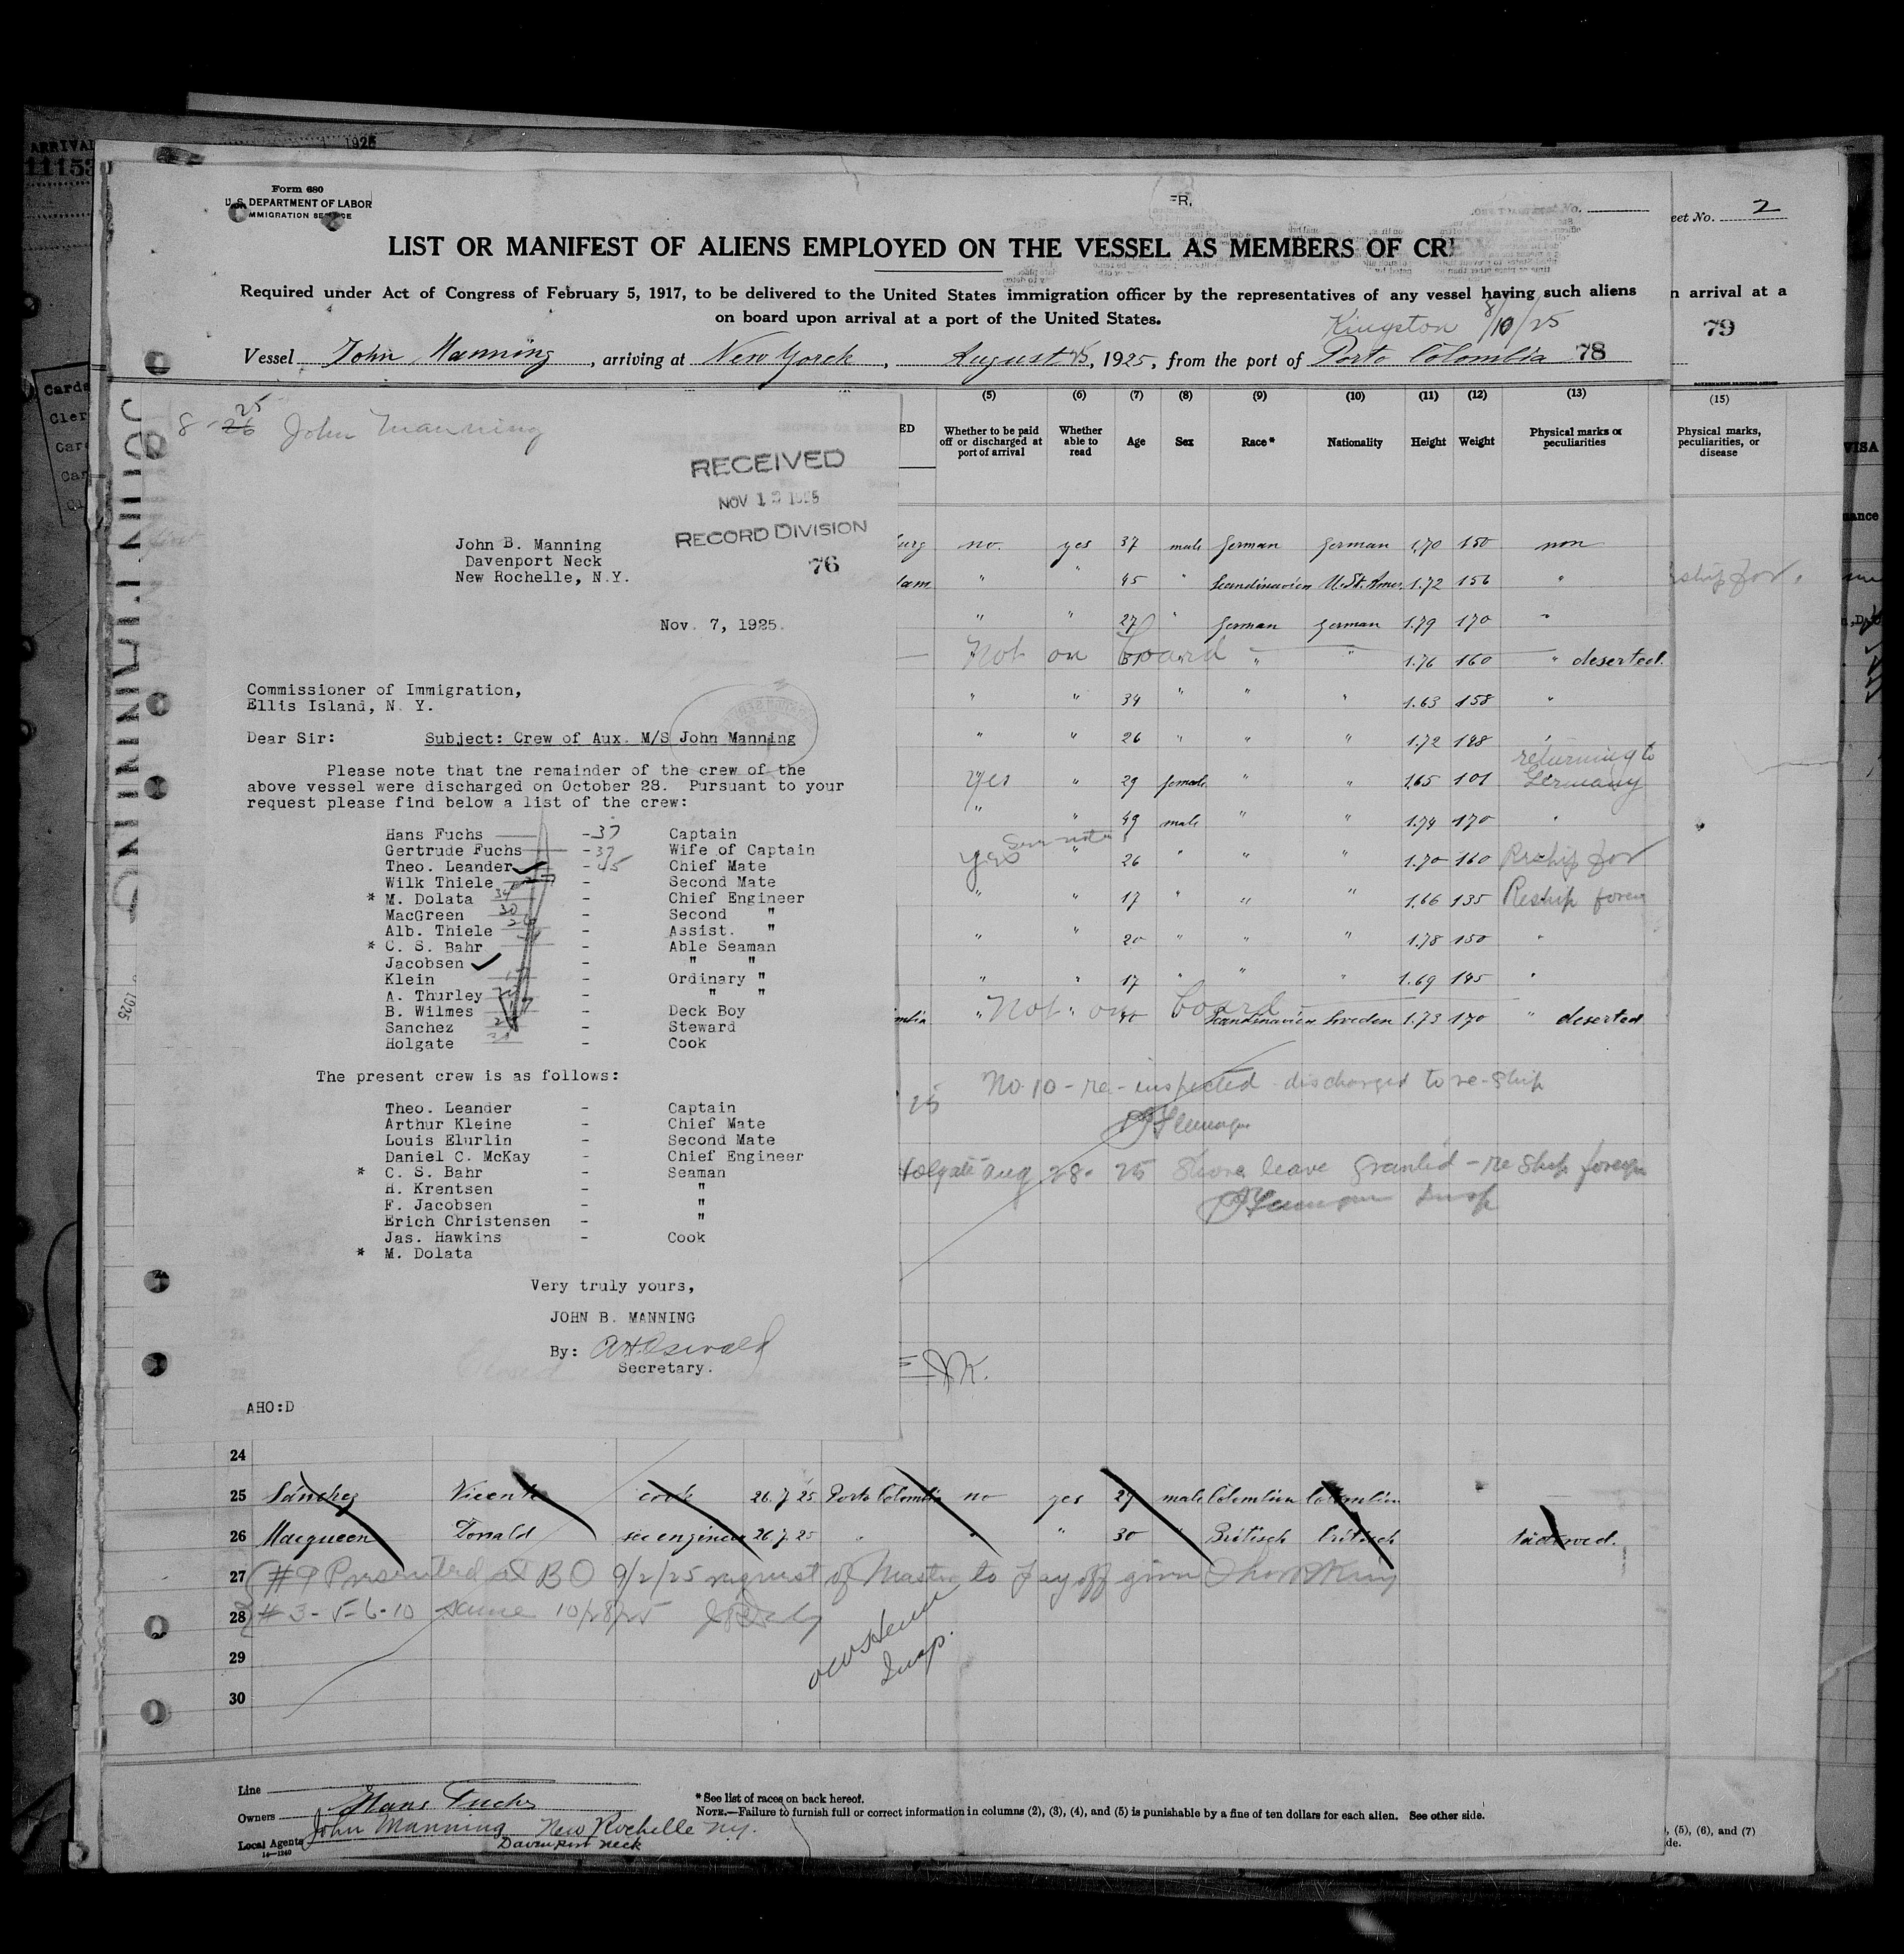 Form 680
U. S. DEPARTMENT OF LABOR
IMMIGRATION SERVICE
LIST OR MANIFEST OF ALIENS EMPLOYED ON THE VESSEL AS MEMBERS OF CR
Required under Act of Congress of February 5, 1917, to be delivered to the United States immigration officer by the representatives of any vessel having such aliens
on board upon arrival at a port of the United States.
Kingston 8/10/25
Vessel John Manning, arriving at New Yorck, August 25, 1925, from the port of Porto Colombia 78
eet No. 2
n arrival at a
79
8-26 25 John Manning
RECEIVED
NOV 1 1925
RECORD DIVISION
76
John B. Manning
Davenport Neck
New Rochelle, N.Y.
Nov. 7, 1925.
Commissioner of Immigration,
Ellis Island, N. Y.
Dear Sir: Subject: Crew of Aux. M/S John Manning
Please note that the remainder of the crew of the
above vessel were discharged on October 28. Pursuant to your
request please find below a list of the crew:
Hans Fuchs - 37 Captain
Gertrude Fuchs - 37 Wife of Captain
Theo. Leander - 45 Chief Mate
Wilk Thiele - Second Mate
* M. Dolata 34 - Chief Engineer
MacGreen 30 - Second "
Alb. Thiele - Assist. "
* C. S. Bahr - Able Seaman
Jacobsen - " "
Klein - Ordinary "
A. Thurley - " "
B. Wilmes - Deck Boy
Sanchez - Steward
Holgate - Cook
The present crew is as follows:
Theo. Leander - Captain
Arthur Kleine - Chief Mate
Louis Elurlin - Second Mate
Daniel C. McKay - Chief Engineer
* C. S. Bahr - Seaman
H. Krentsen - "
F. Jacobsen - "
Erich Christensen - "
Jas. Hawkins - Cook
* M. Dolata
Very truly yours,
JOHN B. MANNING
By: AHOswald
Secretary.
AHO:D
(5) (6) (7) (8) (9) (10) (11) (12) (13) (15)
ED Whether to be paid off or discharged at port of arrival Whether able to read Age Sex Race* Nationality Height Weight Physical marks or peculiarities Physical marks, peculiarities, or disease
burg no. yes 37 male German German 1.70 150 non
dam " " 45 " Scandinavien U.St.Amer. 1.72 156 "
" " 27 " German German 1.79 170 "
Not on board " " 1.76 160 " deserted.
" " 34 " " " 1.63 158 "
" " 26 " " " 1.72 148 "
yes " 29 female " " 1.65 101 returning to Germany
" " 49 male " " 1.74 170 "
yes " 26 " " " 1.70 160 Reship for
" " 17 " " " 1.66 135 Reship foren
" " 20 " " " 1.78 150 "
" " 17 " " " 1.69 145 "
mbia " Not on board 40 Scandinavien Sweden 1.73 170 " deserted
25 No 10 - re-inspected discharged to re-ship
Holgate Aug 28-25 Shore leave granted - re ship foreign
Insp
24
25 Sánchez Vicente cook 26.7.25 Porto Colombia no yes 27 male Colombian Colombian
26 Macqueen Donald sec engineer 26.7.25 " " " 30 " Britisch britisch tactowed.
27 (#9 Presented at BO 9/2/25 request of Master to pay off given
28 #3-5-6-10 same 10/28/25
Insp.
29
30
Line
Owners Hans Fuchs
Local Agents John Manning New Rochelle N.Y.
Davenport Neck
14—1240
* See list of races on back hereof.
NOTE.—Failure to furnish full or correct information in columns (2), (3), (4), and (5) is punishable by a fine of ten dollars for each alien. See other side.
, (5), (6), and (7)
de.
ARRIVAL
1925
11153
VISA
JOHN MANNING
1925